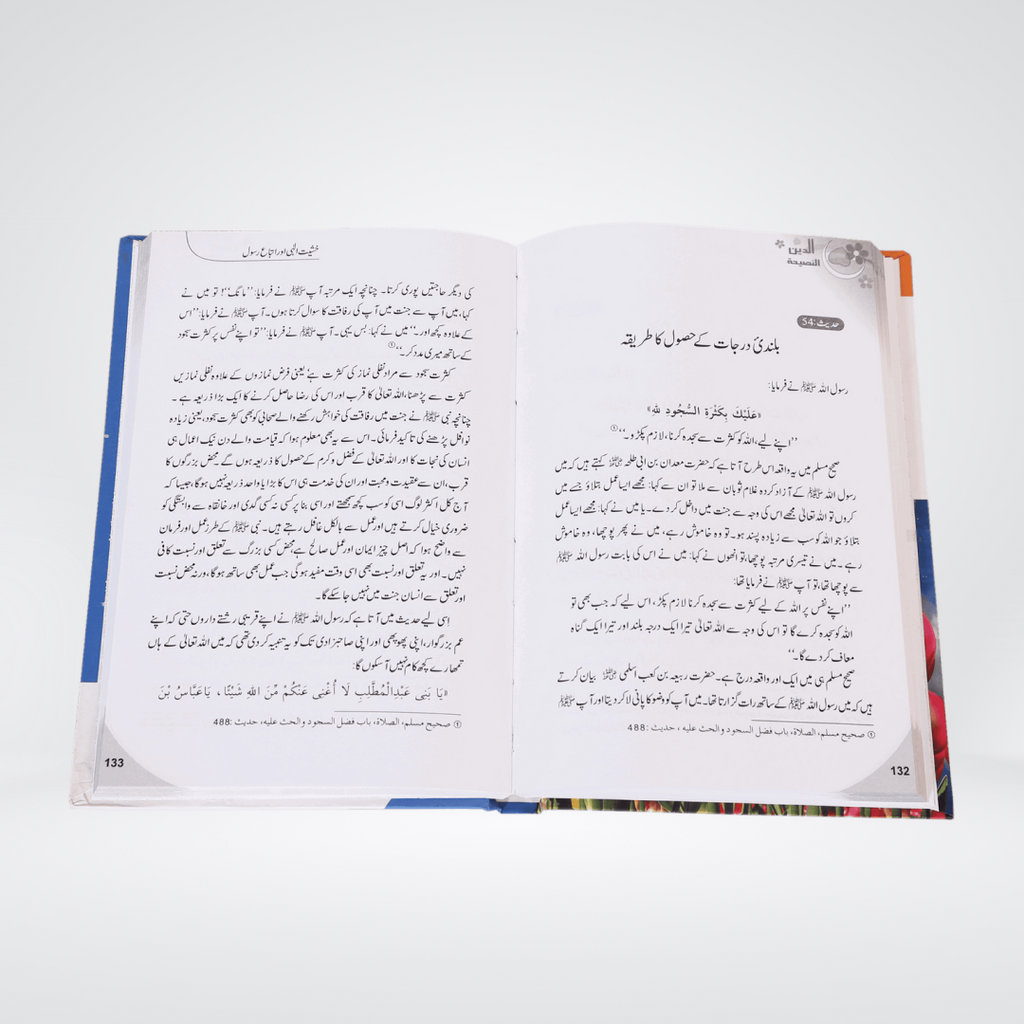 الدين
النصيحة
حدیث:54
بلندیٔ درجات کے حصول کا طریقہ
رسول اللہ ﷺ نے فرمایا:
«عَلَيْكَ بِكَثْرَةِ السُّجُودِ لِلّٰهِ»
’’اپنے لیے، اللہ کو کثرت سے سجدہ کرنا، لازم پکڑو۔‘‘①
صحیح مسلم میں یہ واقعہ اس طرح آتا ہے کہ حضرت معدان بن ابی طلحہ کہتے ہیں کہ میں
رسول اللہ ﷺ کے آزاد کردہ غلام ثوبان سے ملا تو ان سے کہا: مجھے ایسا عمل بتلاؤ جسے میں
کروں تو اللہ تعالیٰ مجھے اس کی وجہ سے جنت میں داخل کر دے۔ یا میں نے کہا: مجھے ایسا عمل
بتلاؤ جو اللہ کو سب سے زیادہ پسند ہو۔ تو وہ خاموش رہے، میں نے پھر پوچھا، وہ خاموش
رہے۔ میں نے تیسری مرتبہ پوچھا، تو انھوں نے کہا: میں نے اس کی بابت رسول اللہ ﷺ
سے پوچھا تھا، تو آپ ﷺ نے فرمایا تھا:
’’اپنے نفس پر اللہ کے لیے کثرت سے سجدہ کرنا لازم پکڑ، اس لیے کہ جب بھی تو
اللہ کو سجدہ کرے گا تو اس کی وجہ سے اللہ تعالیٰ تیرا ایک درجہ بلند اور تیرا ایک گناہ
معاف کر دے گا۔‘‘
صحیح مسلم ہی میں ایک اور واقعہ درج ہے۔ حضرت ربیعہ بن کعب اسلمی بیان کرتے
ہیں کہ میں رسول اللہ ﷺ کے ساتھ رات گزارتا تھا۔ میں آپ کو وضو کا پانی لا کر دیتا اور آپ ﷺ
① صحیح مسلم، الصلاة، باب فضل السجود والحث علیه، حدیث: 488
132
خشیت الٰہی اور اتباع رسول
کی دیگر حاجتیں پوری کرتا۔ چنانچہ ایک مرتبہ آپ ﷺ نے فرمایا: ’’مانگ‘‘! تو میں نے
کہا، میں آپ سے جنت میں آپ کی رفاقت کا سوال کرتا ہوں۔ آپ ﷺ نے فرمایا: ’’اس
کے علاوہ کچھ اور۔‘‘ میں نے کہا: بس یہی۔ آپ ﷺ نے فرمایا: ’’تو اپنے نفس پر کثرت سجود
کے ساتھ میری مدد کر۔‘‘①
کثرت سجود سے مراد نفلی نماز کی کثرت ہے یعنی فرض نمازوں کے علاوہ نفلی نمازیں
کثرت سے پڑھنا، اللہ تعالیٰ کا قرب اور اس کی رضا حاصل کرنے کا ایک بڑا ذریعہ ہے۔
چنانچہ نبی ﷺ نے جنت میں رفاقت کی خواہش رکھنے والے صحابی کو بھی کثرت سجود، یعنی زیادہ
نوافل پڑھنے کی تاکید فرمائی۔ اس سے یہ بھی معلوم ہوا کہ قیامت والے دن نیک اعمال ہی
انسان کی نجات کا اور اللہ تعالیٰ کے فضل و کرم کے حصول کا ذریعہ ہوں گے محض بزرگوں کا
قرب، ان سے عقیدت و محبت اور ان کی خدمت ہی اس کا بڑا یا واحد ذریعہ نہیں ہوگا، جیسا کہ
آج کل اکثر لوگ اسی کو سب کچھ سمجھتے اور اسی بنا پر کسی نہ کسی گدی اور خانقاہ سے وابستگی کو
ضروری خیال کرتے ہیں اور عمل سے بالکل غافل رہتے ہیں۔ نبی ﷺ کے طرز عمل اور فرمان
سے واضح ہوا کہ اصل چیز ایمان اور عمل صالح ہے محض کسی بزرگ سے تعلق اور نسبت کافی
نہیں۔ اور یہ تعلق اور نسبت بھی اسی وقت مفید ہوگی جب عمل بھی ساتھ ہوگا، ورنہ محض نسبت
اور تعلق سے انسان جنت میں نہیں جا سکے گا۔
اسی لیے حدیث میں آتا ہے کہ رسول اللہ ﷺ نے اپنے قریبی رشتے داروں حتی کہ اپنے
عم بزرگوار، اپنی پھوپھی اور اپنی صاحبزادی تک کو یہ تنبیہ کر دی تھی کہ میں اللہ تعالیٰ کے ہاں
تمھارے کچھ کام نہیں آ سکوں گا:
«يَا بَنِي عَبْدِالْمُطَّلِبِ لَا أُغْنِي عَنْكُمْ مِّنَ اللّٰهِ شَيْئًا، يَاعَبَّاسُ بْنَ
① صحیح مسلم، الصلاة، باب فضل السجود والحث علیه، حدیث: 488
133